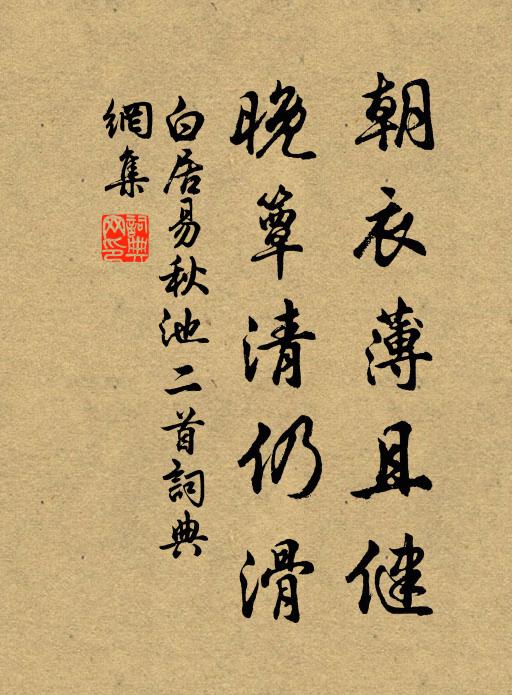 朝衣薄且健
晚簟清仍滑
白居易秋池二首詞典
網集
詞典網印